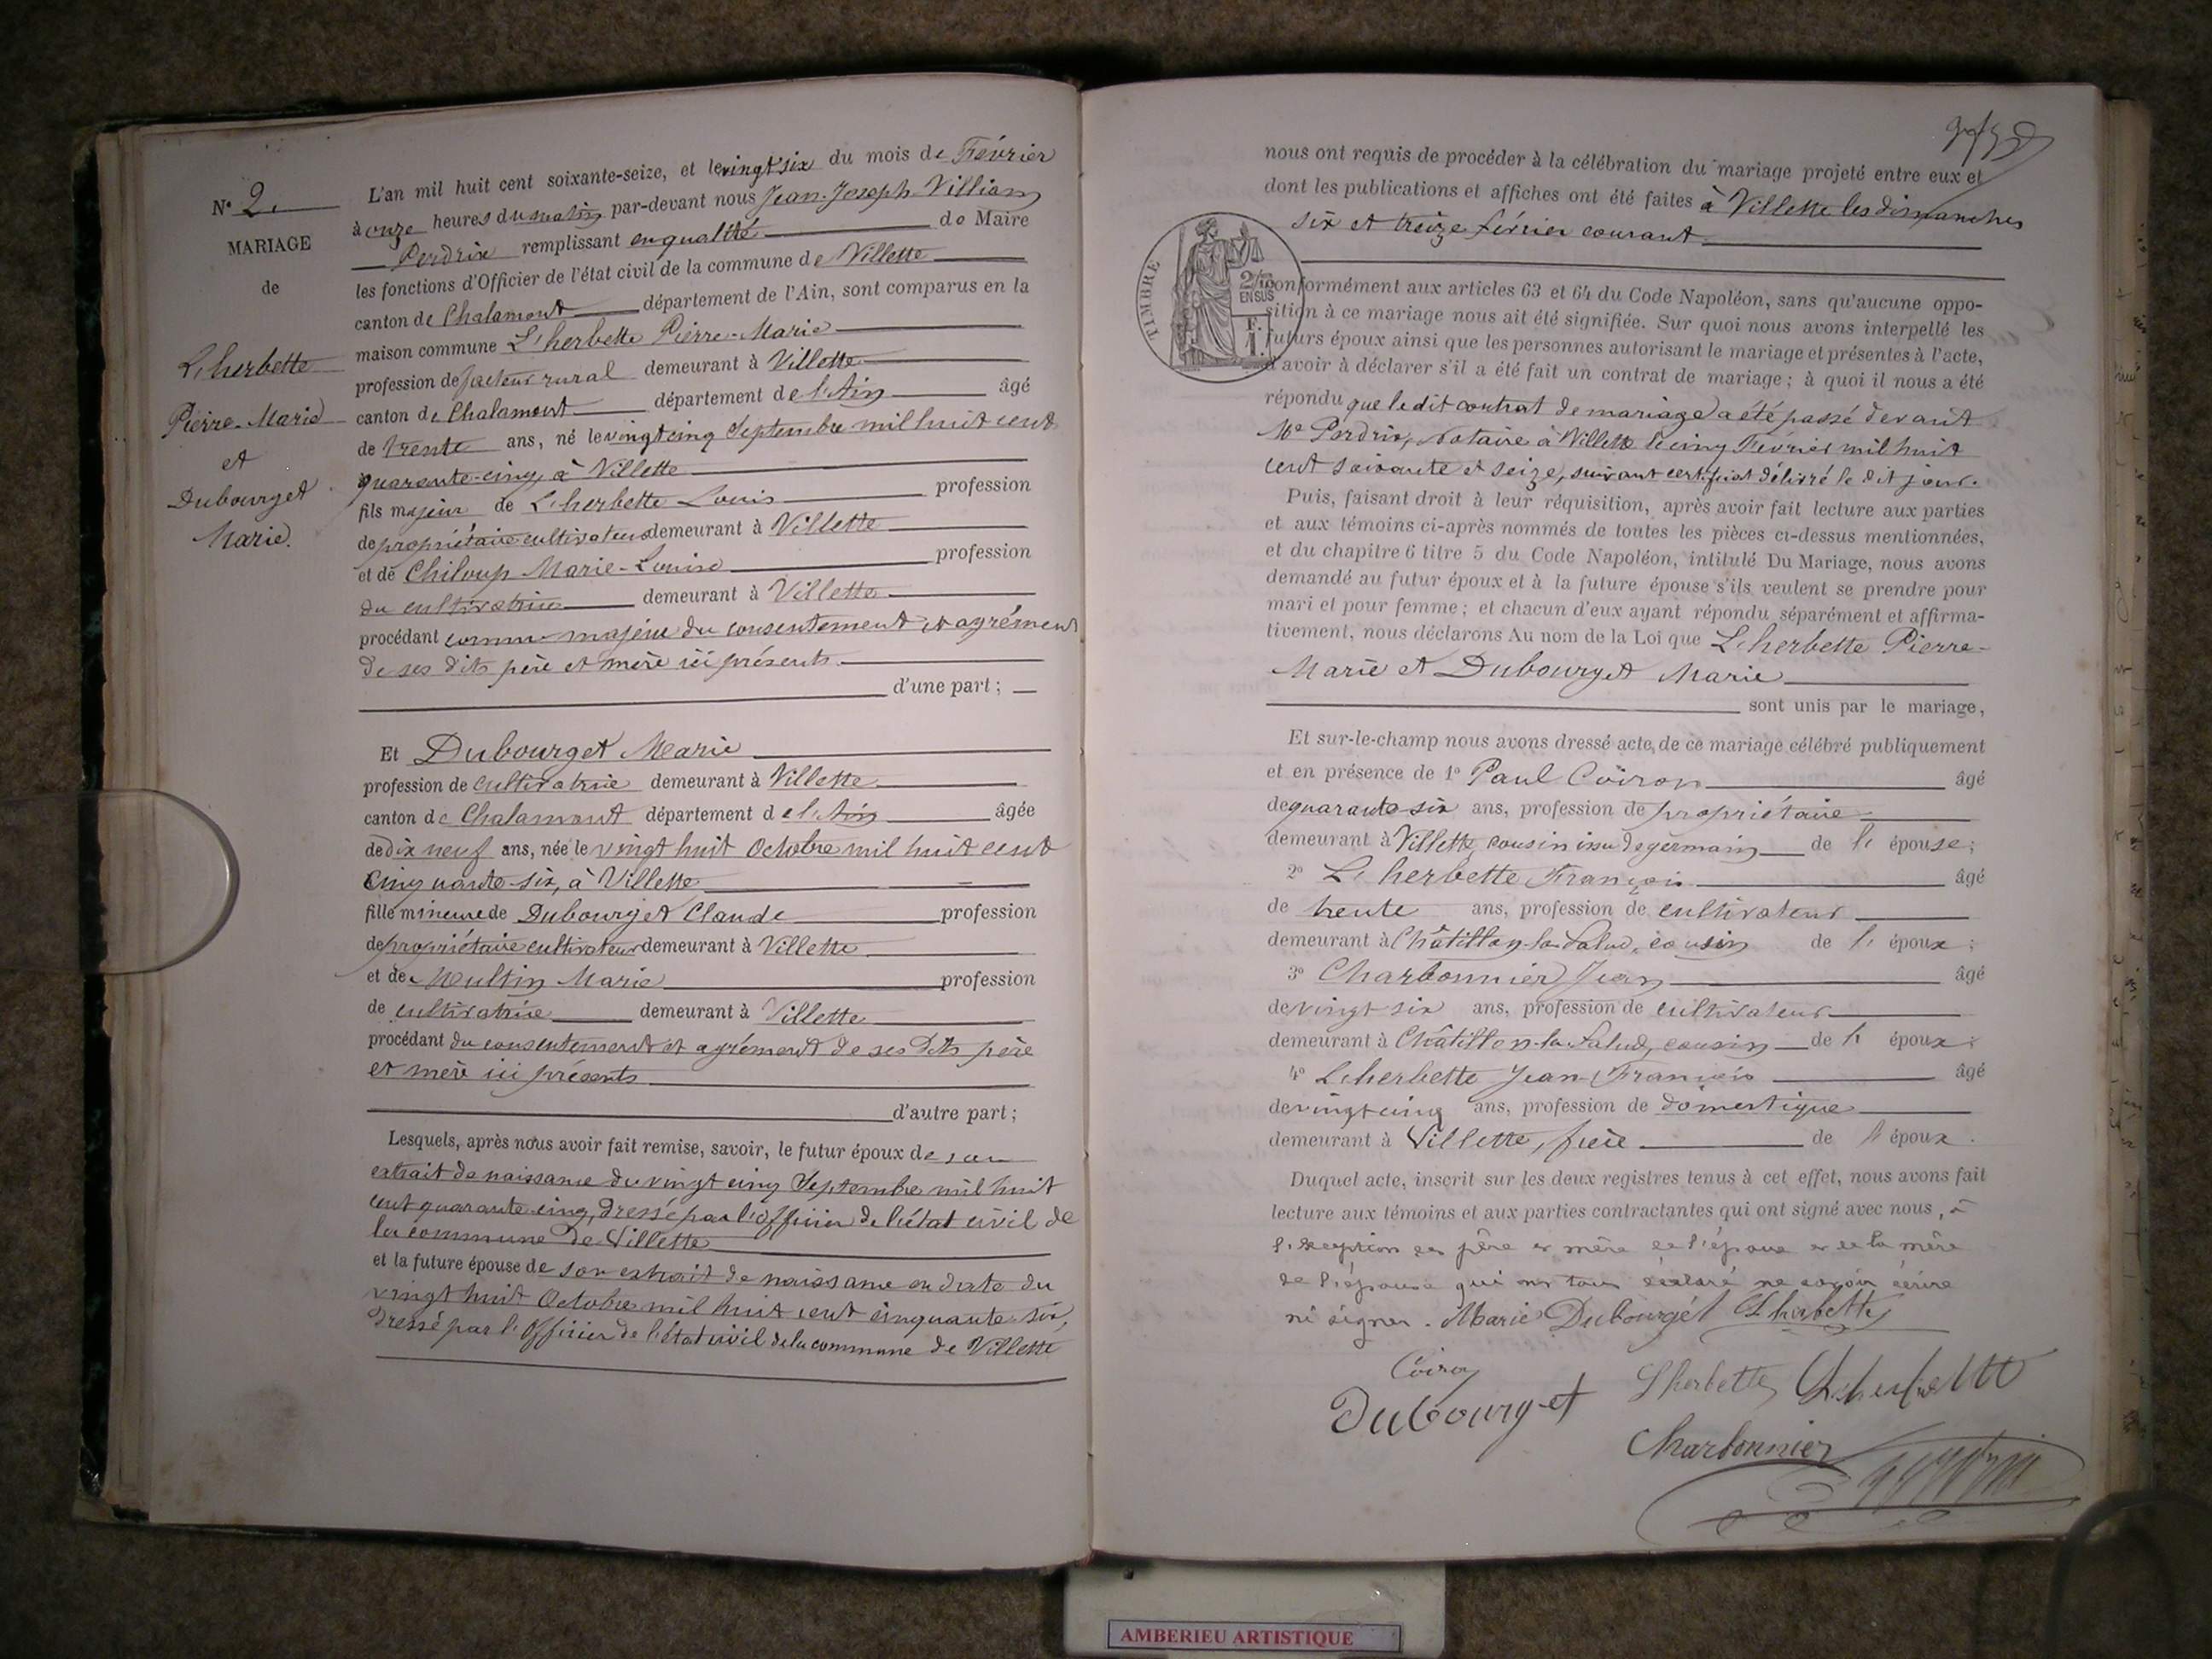 N° 2.
MARIAGE
de
Lherbette
Pierre-Marie
et
Dubourget
Marie.
L'an mil huit cent soixante-seize, et le vingt six du mois de Février
à onze heures du matin par-devant nous Jean-Joseph Villiam
Perdrix remplissant en qualité de Maire
les fonctions d'Officier de l'état civil de la commune de Villette
canton de Chalamont département de l'Ain, sont comparus en la
maison commune Lherbette Pierre-Marie
profession de facteur rural demeurant à Villette
canton de Chalamont département de l'Ain âgé
de trente ans, né le vingt cinq Septembre mil huit cent
quarante-cinq, à Villette
fils majeur de Lherbette Louis profession
de propriétaire cultivateur demeurant à Villette
et de Chiloup Marie-Louise profession
de cultivatrice demeurant à Villette
procédant comme majeur du consentement et agrément
de ses dits père et mère ici présents.
d'une part;
Et Dubourget Marie
profession de cultivatrice demeurant à Villette
canton de Chalamont département de l'Ain âgée
de dix neuf ans, née le vingt huit Octobre mil huit cent
cinquante-six, à Villette
fille mineure de Dubourget Claude profession
de propriétaire cultivateur demeurant à Villette
et de Meultin Marie profession
de cultivatrice demeurant à Villette
procédant du consentement et agrément de ses dits père
et mère ici présents
d'autre part;
Lesquels, après nous avoir fait remise, savoir, le futur époux de son
extrait de naissance du vingt cinq Septembre mil huit
cent quarante cinq, dressé par l'officier de l'état civil de
la commune de Villette
et la future épouse de son extrait de naissance en date du
vingt huit Octobre mil huit cent cinquante six,
dressé par l'Officier de l'état civil de la commune de Villette
nous ont requis de procéder à la célébration du mariage projeté entre eux et
dont les publications et affiches ont été faites à Villette les dimanches
six et treize février courant.
TIMBRE
2/10
EN SUS
F.
1.
conformément aux articles 63 et 64 du Code Napoléon, sans qu'aucune oppo-
sition à ce mariage nous ait été signifiée. Sur quoi nous avons interpellé les
futurs époux ainsi que les personnes autorisant le mariage et présentes à l'acte,
d'avoir à déclarer s'il a été fait un contrat de mariage; à quoi il nous a été
répondu que le dit contrat de mariage a été passé devant
Me Perdrix, Notaire à Villette le cinq Février mil huit
cent soixante et seize, suivant certificat délivré le dit jour.
Puis, faisant droit à leur réquisition, après avoir fait lecture aux parties
et aux témoins ci-après nommés de toutes les pièces ci-dessus mentionnées,
et du chapitre 6 titre 5 du Code Napoléon, intitulé Du Mariage, nous avons
demandé au futur époux et à la future épouse s'ils veulent se prendre pour
mari et pour femme; et chacun d'eux ayant répondu séparément et affirma-
tivement, nous déclarons Au nom de la Loi que Lherbette Pierre-
Marie et Dubourget Marie
sont unis par le mariage,
Et sur-le-champ nous avons dressé acte, de ce mariage célébré publiquement
et en présence de 1° Paul Coiron âgé
de quarante six ans, profession de propriétaire
demeurant à Villette, cousin issu de germain de l' épouse;
2° Lherbette François âgé
de trente ans, profession de cultivateur
demeurant à Châtillon-la-Palud, cousin de l' époux;
3° Charbonnier Jean âgé
de vingt six ans, profession de cultivateur
demeurant à Châtillon-la-Palud, cousin de l' époux;
4° Lherbette Jean-François âgé
de vingt cinq ans, profession de domestique
demeurant à Villette, frère de l' époux.
Duquel acte, inscrit sur les deux registres tenus à cet effet, nous avons fait
lecture aux témoins et aux parties contractantes qui ont signé avec nous, à
l'exception des père et mère de l'époux et de la mère
de l'épouse qui ont tous déclaré ne savoir écrire
ni signer. Marie Dubourget Lherbette
Coiron
Dubourget Lherbette Lherbette
Charbonnier
AMBERIEU ARTISTIQUE